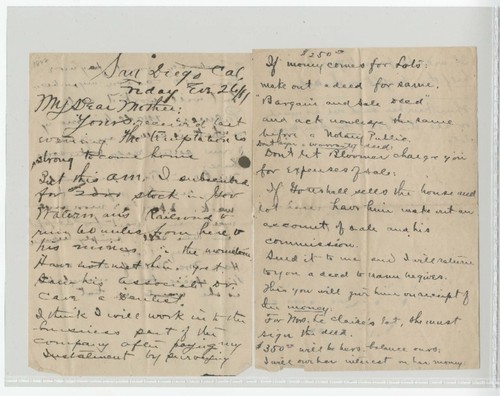 San Diego Cal,
Friday Eve 26/11
My Dear Mother:
Yours received last
evening The temptation is
strong to come home
But this a.m. I subscribed
for stock in Gov
Waterman's Railroad to
run 60 miles from here to
his mines in the mountains
Have not met him yet
his associate Dr.
Cave a Dentist
I think I will work in to the
business part of the
company after paying my
Installment by surveying
$250.00
If money comes for Lots
make out a deed for same.
Bargain and Sale deed
and acknowledge the same
before a Notary Public
Don't sign a warranty deed:
Don't let Bloomer charge you
for expenses of sale:
If sells the house need
not have him make out an
account of sale and his
commission.
Send it to me and I will return
to you a deed to name he gives.
Then you will give him on receipt of
the money.
For Mrs. Le Claire's lot, she must
sign the deed.
$350.00 will be hers. balance ours:
I will our her interest on her money